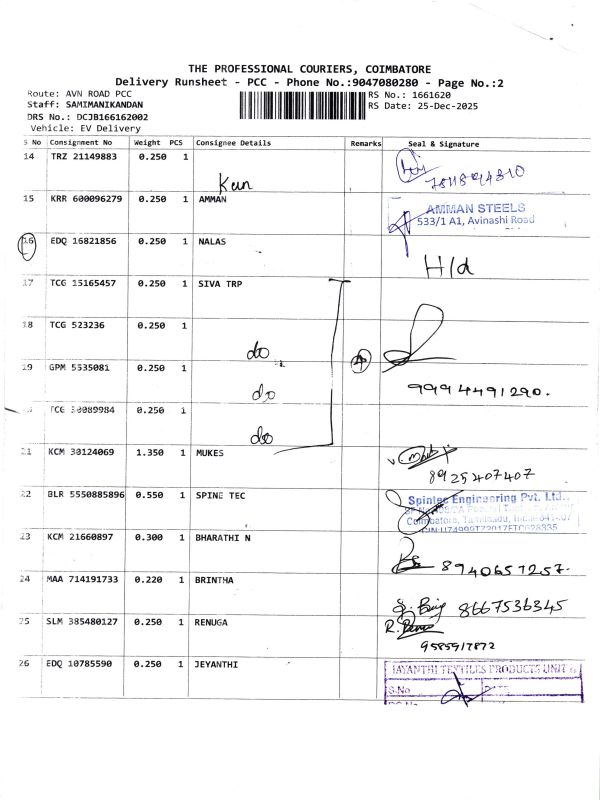 THE PROFESSIONAL COURIERS, COIMBATORE
Delivery Runsheet - PCC - Phone No.:9047080280 - Page No.:2
Route: AVN ROAD PCC
RS No.: 1661620
Staff: SAMIMANIKANDAN
RS Date: 25-Dec-2025
DRS No.: DCJB166162002
Vehicle: EV Delivery
S No Consignment No Weight PCS Consignee Details Remarks Seal & Signature
14 TRZ 21149883 0.250 1
15 KRR 600096279 0.250 1 AMMAN
AMMAN STEELS
533/1 A1, Avinashi Road
16 EDQ 16821856 0.250 1 NALAS
H/d
17 TCG 15165457 0.250 1 SIVA TRP
18 TCG 523236 0.250 1
do
4
19 GPM 5535081 0.250 1
do
9994491290.
TCG 30089984 0.250 1
do
21 KCM 30124069 1.350 1 MUKES
8925407407
22 BLR 5550885896 0.550 1 SPINE TEC
Spintec Engineering Pvt. Ltd.,
23 KCM 21660897 0.300 1 BHARATHI N
8940657257.
24 MAA 714191733 0.220 1 BRINTHA
8667536345
25 SLM 385480127 0.250 1 RENUGA
9585917872
26 EDQ 10785590 0.250 1 JEYANTHI
JAYANTHI TEXTILES PRODUCTS UNIT
S.No